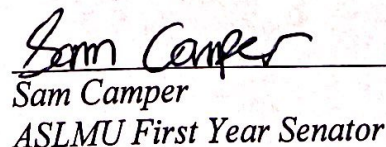 Sam Camper
Sam Camper
ASLMU First Year Senator